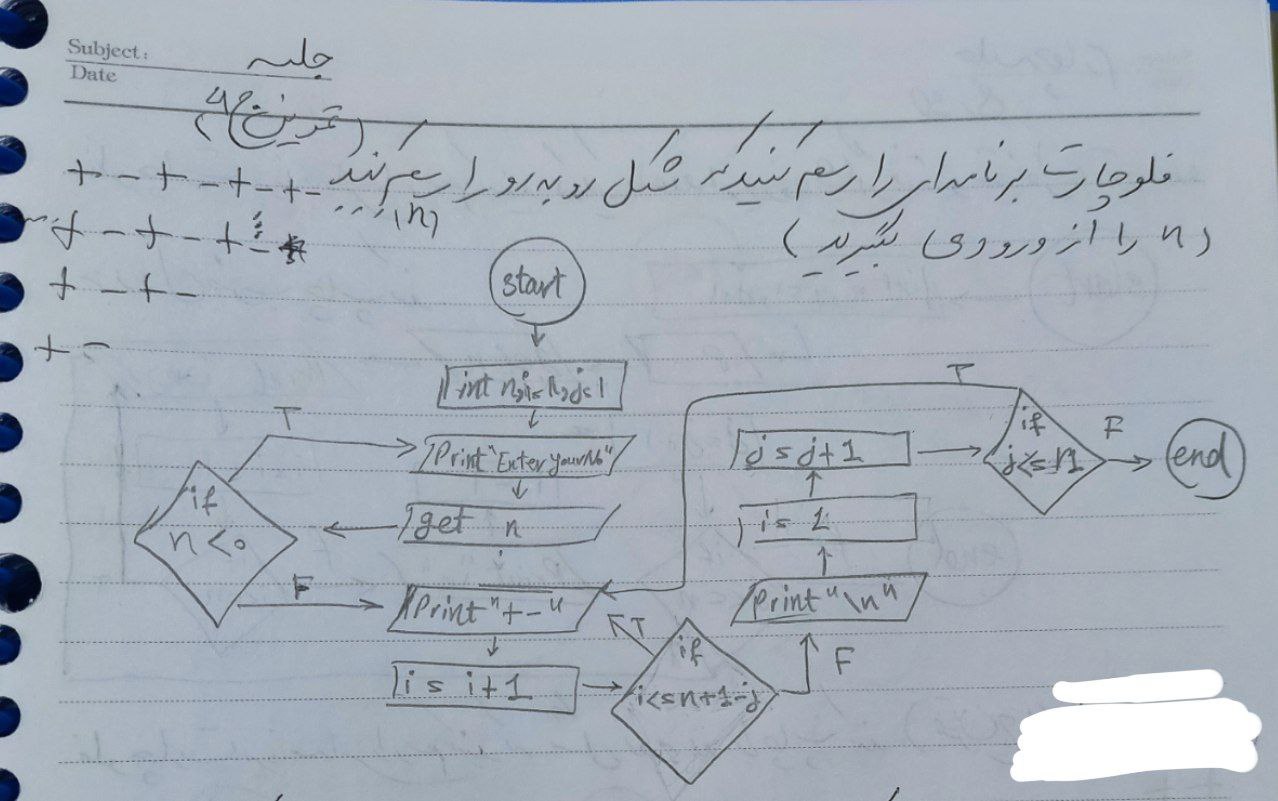 Subject:
Date
جلسه
(تمرین ۴)
فلوچارت برنامه‌ای را رسم کنید که شکل روبه‌رو را رسم کند
(n را از ورودی بگیرید)
+ - + - + - + - ... (n)
+ - + - + -
+ - + -
+ -
start
int n, i=1, j=1
Print "Enter your No"
get n
if
n < 0
T
F
Print "+ -"
i = i+1
if
i <= n+1-j
T
F
Print "\n"
i = 1
j = j+1
if
j <= n
T
F
end